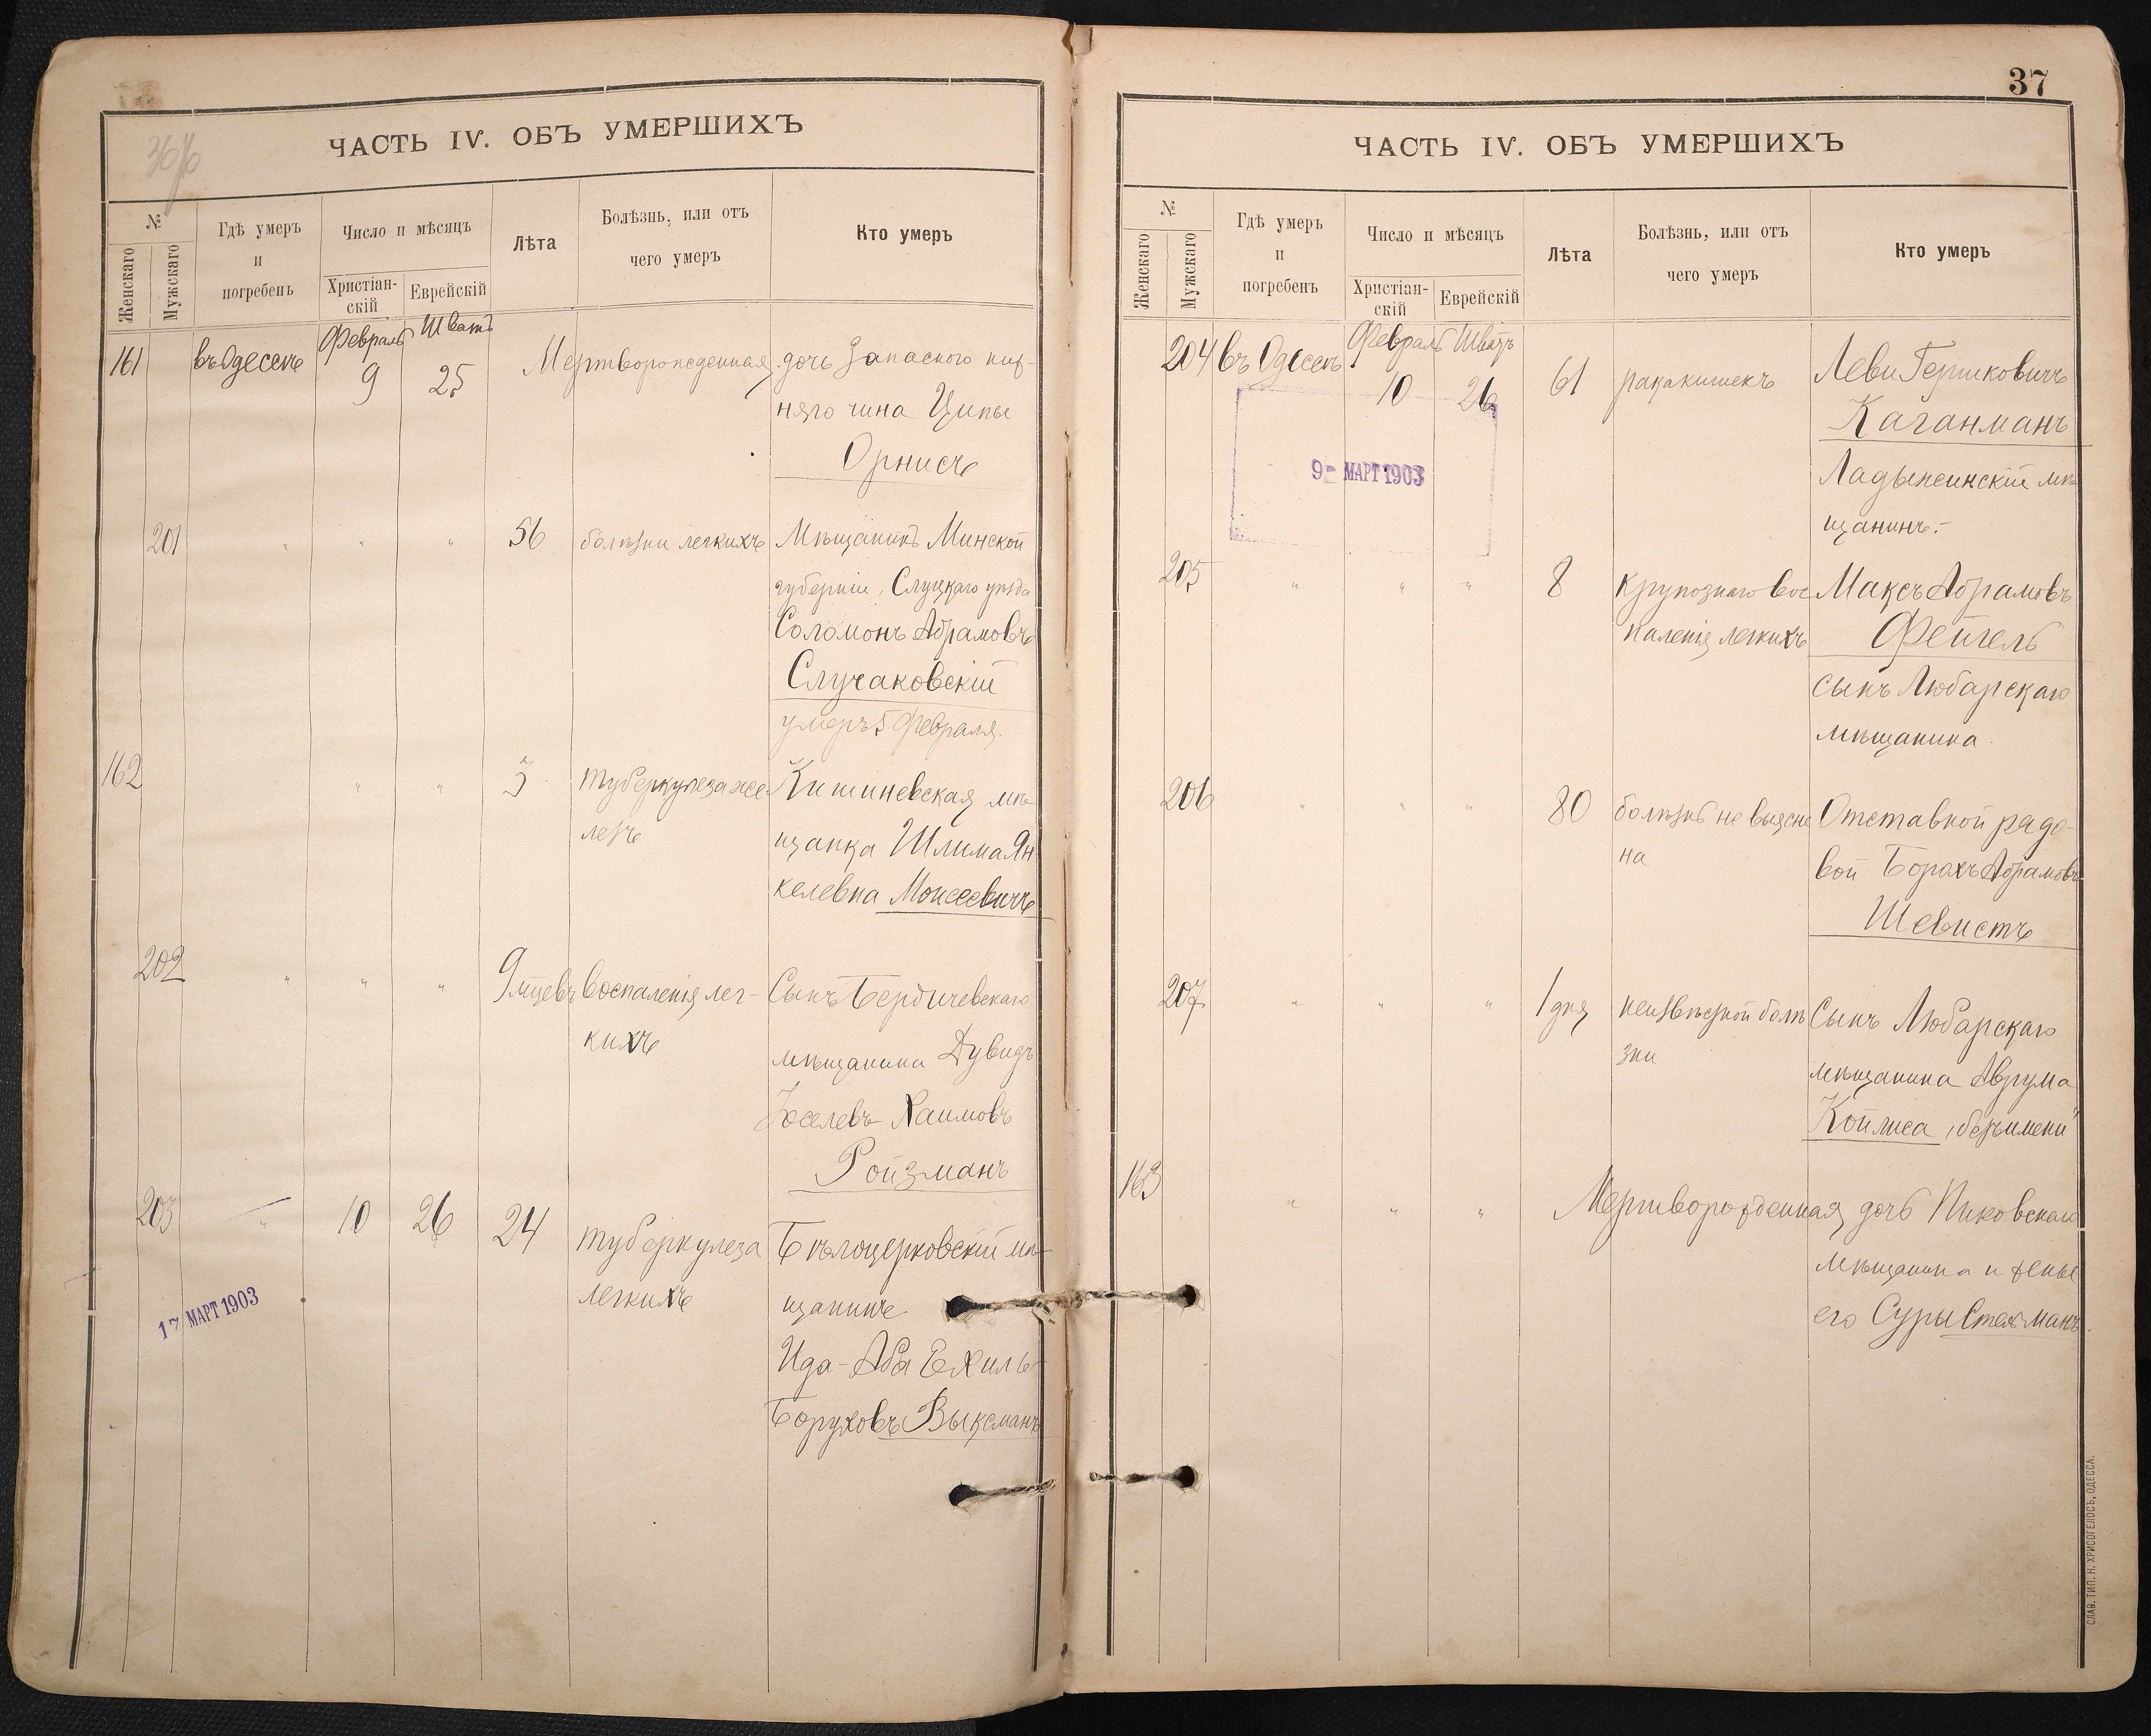 36/6
ЧАСТЬ IV. ОБЪ УМЕРШИХЪ
№
Женскаго
Мужскаго
Гдѣ умеръ
и
погребенъ
Число и мѣсяцъ
Христіан-
скій
Еврейскій
Лѣта
Болѣзнь, или отъ
чего умеръ
Кто умеръ
161 въ Одессѣ Февраль 9 Шватъ 25 Мертворожденная дочь Запаснаго ниж-
няго чина Ципы
Орнисъ
201 " " " 56 болѣзни легкихъ Мѣщанинъ Минской
губерніи, Слуцкаго уѣзда
Соломонъ Абрамовъ
Случаковскій
умеръ 5 Февраля.
162 " " " 3 туберкулеза же- Кишиневская мѣ-
лезъ щанка Шлима Ян-
келевна Моисеевичъ
202 " " " 9 мцевъ Воспаленія лег- Сынъ Бердичевскаго
кихъ мѣщанина Дувидъ
Іоселевъ-Хаимовъ
Ройзманъ
203 " 10 26 24 туберкулеза Бѣлоцерковскій мѣ-
легкихъ щанинъ
Ида-Аба Ехиль-
Боруховъ Выксманъ
17 МАРТ 1903
37
ЧАСТЬ IV. ОБЪ УМЕРШИХЪ
№
Женскаго
Мужскаго
Гдѣ умеръ
и
погребенъ
Число и мѣсяцъ
Христіан-
скій
Еврейскій
Лѣта
Болѣзнь, или отъ
чего умеръ
Кто умеръ
204 въ Одессѣ Февраль 10 Шватъ 26 61 рака кишекъ Леви Гершковичъ
Каганманъ
Ладыжинскій мѣ-
щанинъ.-
9- МАРТ 1903
205 " " " 8 Крупознаго вос Максъ Абрамовъ
паленія легкихъ Фейгель
сынъ Любарскаго
мѣщанина.
206 " " " 80 болѣзнь не выясне Отставной рядо-
на вой Борахъ Абрамовъ
Шевистъ
207 " " " 1 дня неизвѣстной болѣ Сынъ Любарскаго
зни мѣщанина Аврума
Койлиса, "безъ имени"
163 " " " Мертворожденная дочь Пиковскаго
мѣщанина и жены
его Суры Стельманъ.
СЛАВ. ТИП. Н. ХРИСОГЕЛОСЪ, ОДЕССА.